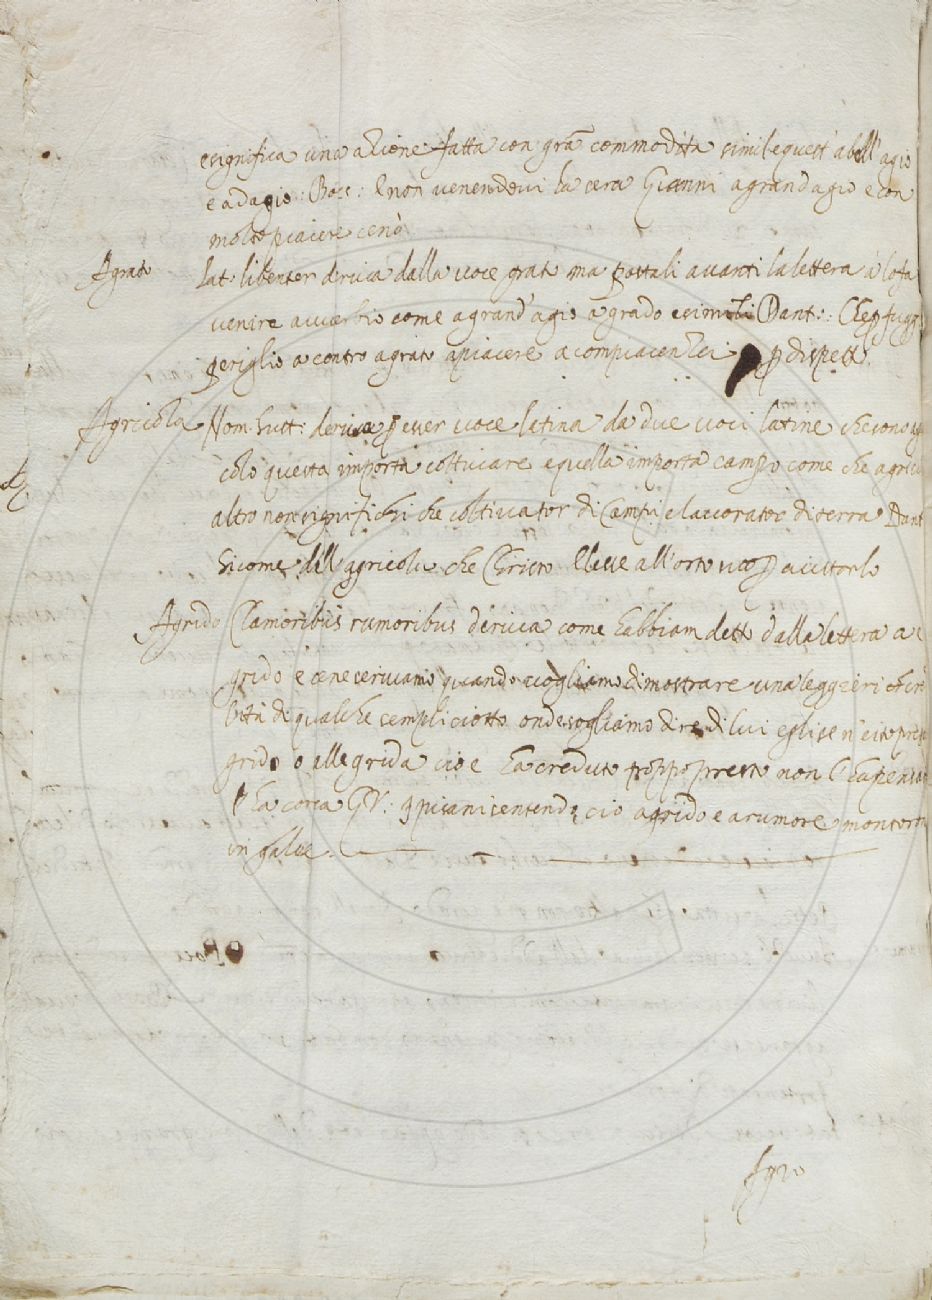 e significa una azione fatta con grã commodità simile quest' a bell' agio
e adagio: Bocc: E non venendovi la cera Gianni a grand agio e con
molto piacere cenò
Agrato Lat. libenter deriva dalla voce grato ma postali avanti la lettera a lo fa
venire avverbio come a grand' agio a grado e simili Dant: Che p fugg
periglio contro a grato a piacere a compiacenza p dispett.
Agricola Nom. sust: deriva p esser voce latina da due voci latine che sono
colo questa importa coltivare e quella importa campo come che agric
altro non significhi che coltivator di Campi e lavorator di terra Dant
Sicome dell agricola che Christo Elesse all' orto suo p aiutarlo
Agrido Clamoribus rumoribus deriva come habbiam dett dalla lettera a e
grido e cene serviamo quando vogliamo dimostrare una leggieri
bità di qualche sempliciotto onde sogliamo dire di lui egli se n' è ito pres
grido o alle grida cio è ha creduto troppo presto non l ha pensa
la cosa GV: i pisani sentendo ciò a grido e a rumore montoro
in galee.
Agro